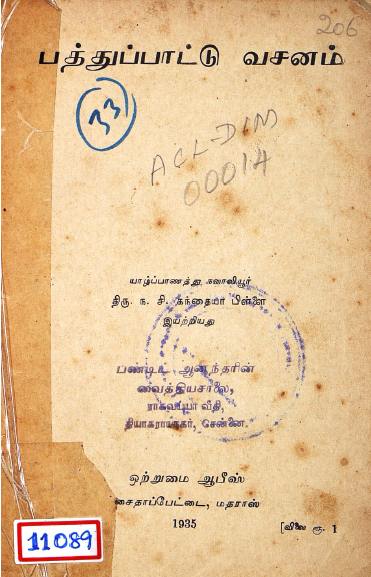 206
பத்துப்பாட்டு வசனம்
33
ACL-DIM
00014
யாழ்ப்பாணத்து நவாலியூர்
திரு. ந. சி. கந்தையா பிள்ளை
இயற்றியது
பண்டிட் ஆனந்தரின்
வைத்தியசாலை,
ராகவய்யா வீதி,
தியாகராயநகர், சென்னை.
ஒற்றுமை ஆபீஸ்
சைதாப்பேட்டை, மதராஸ்
1935 [விலை ரூ. 1
11089